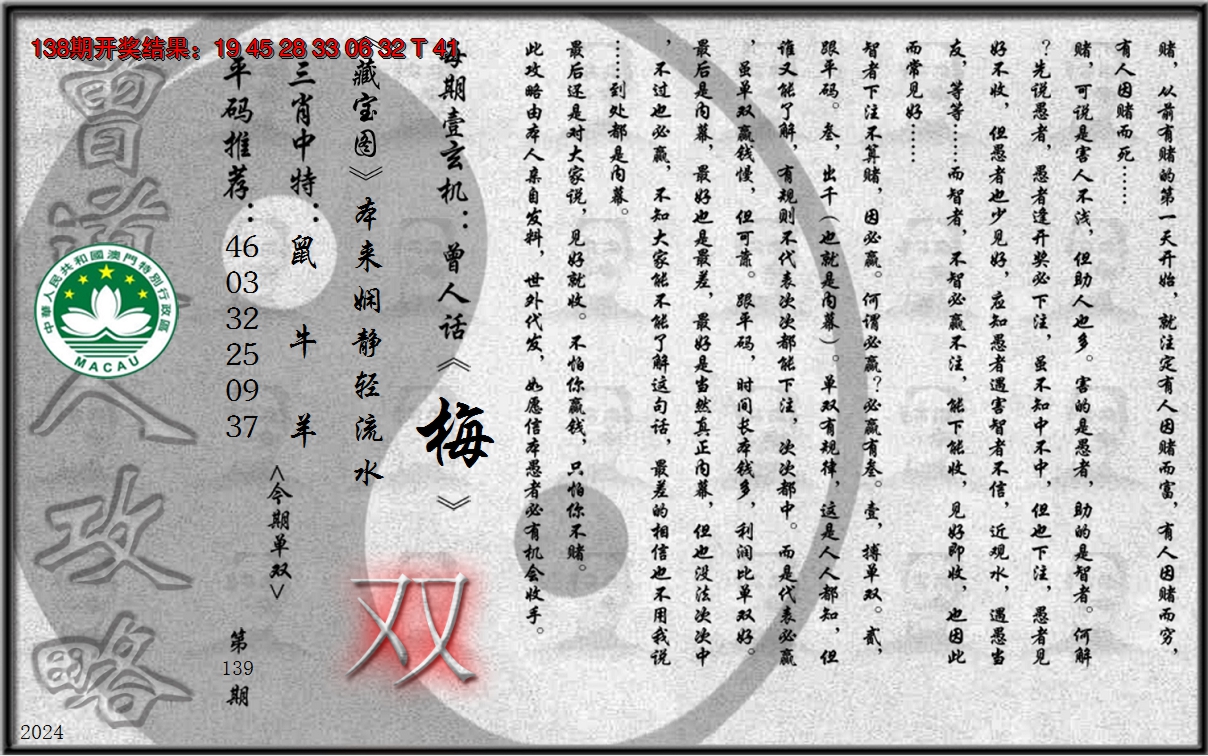 138期开奖结果：19 45 28 33 06 32 T 41
赌，从前有赌的第一天开始，就注定有人因赌而富，有人因赌而穷，
有人因赌而死……
赌，可说是害人不浅，但助人也多。害的是愚者，助的是智者。何解
？先说愚者，愚者逢开奖必下注，虽不知中不中，但也下注，愚者见
好不收，但愚者也少见好，应知愚者遇害智者不信，近观水，遇愚当
友，等等……而智者，不智必赢不注，能下能收，见好即收，也因此
而常见好……
智者下注不算赌，因必赢。何谓必赢？必赢有叁。壹，搏单双。贰，
跟平码。叁，出千（也就是内幕）。单双有规律，这是人人都知，但
谁又能了解，有规则不代表次次都能下注，次次都中。而是代表必赢
，虽单双赢钱慢，但可靠。跟平码，时间长本钱多，利润比单双好。
最后是内幕，最好也是最差，最好是当然真正内幕，但也没法次次中
，不过也必赢，不知大家能不能了解这句话，最差的相信也不用我说
……到处都是内幕。
最后还是对大家说，见好就收。不怕你赢钱，只怕你不赌。
此攻略由本人亲自发料，世外代发，如愿信本愚者必有机会收手。
每期壹玄机：曾人话《梅》
《藏宝图》本来娴静轻流水
双
三肖中特：鼠 牛 羊
<今期单双>
平码推荐：46 03 32 25 09 37
第139期
曾道人攻略
中華人民共和國澳門特別行政區
MACAU
2024